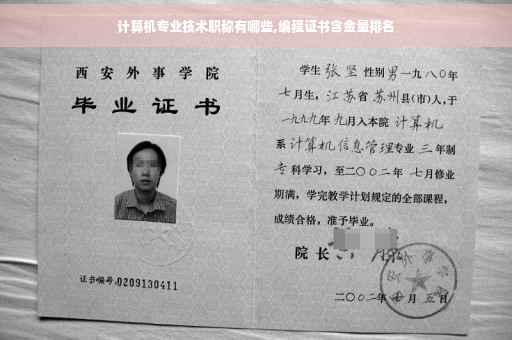 计算机专业技术职称有哪些,编程证书含金量排名
西安外事学院
毕业证书
证书编号:0209130411
学生 张坚 性别 男 一九八〇年
七月生, 江苏省 苏州县(市)人,于
一九九九年 九月入本院 计算机
系 计算机信息管理专业 三 年制
专科学习,至二〇〇二年 七月修业
期满,学完教学计划规定的全部课程,
成绩合格,准予毕业。
院长
二〇〇二年 月 五日